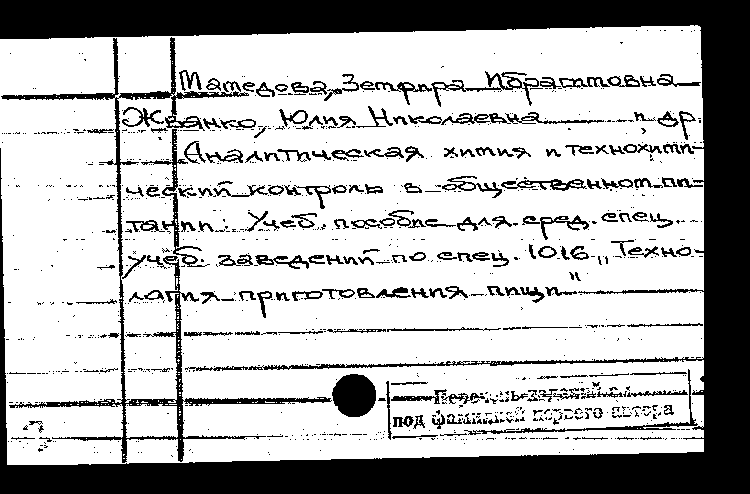 Мамедова, Земфира Ибрагимовна
Жванко, Юлия Николаевна и др.
Аналитическая химия и технохими-
ческий контроль в общественном пи-
тании: Учеб. пособие для сред. спец.
учеб. заведений по спец. 1016 „Техно-
логия приготовления пищи"
Перечень изданий см.
под фамилией первого автора